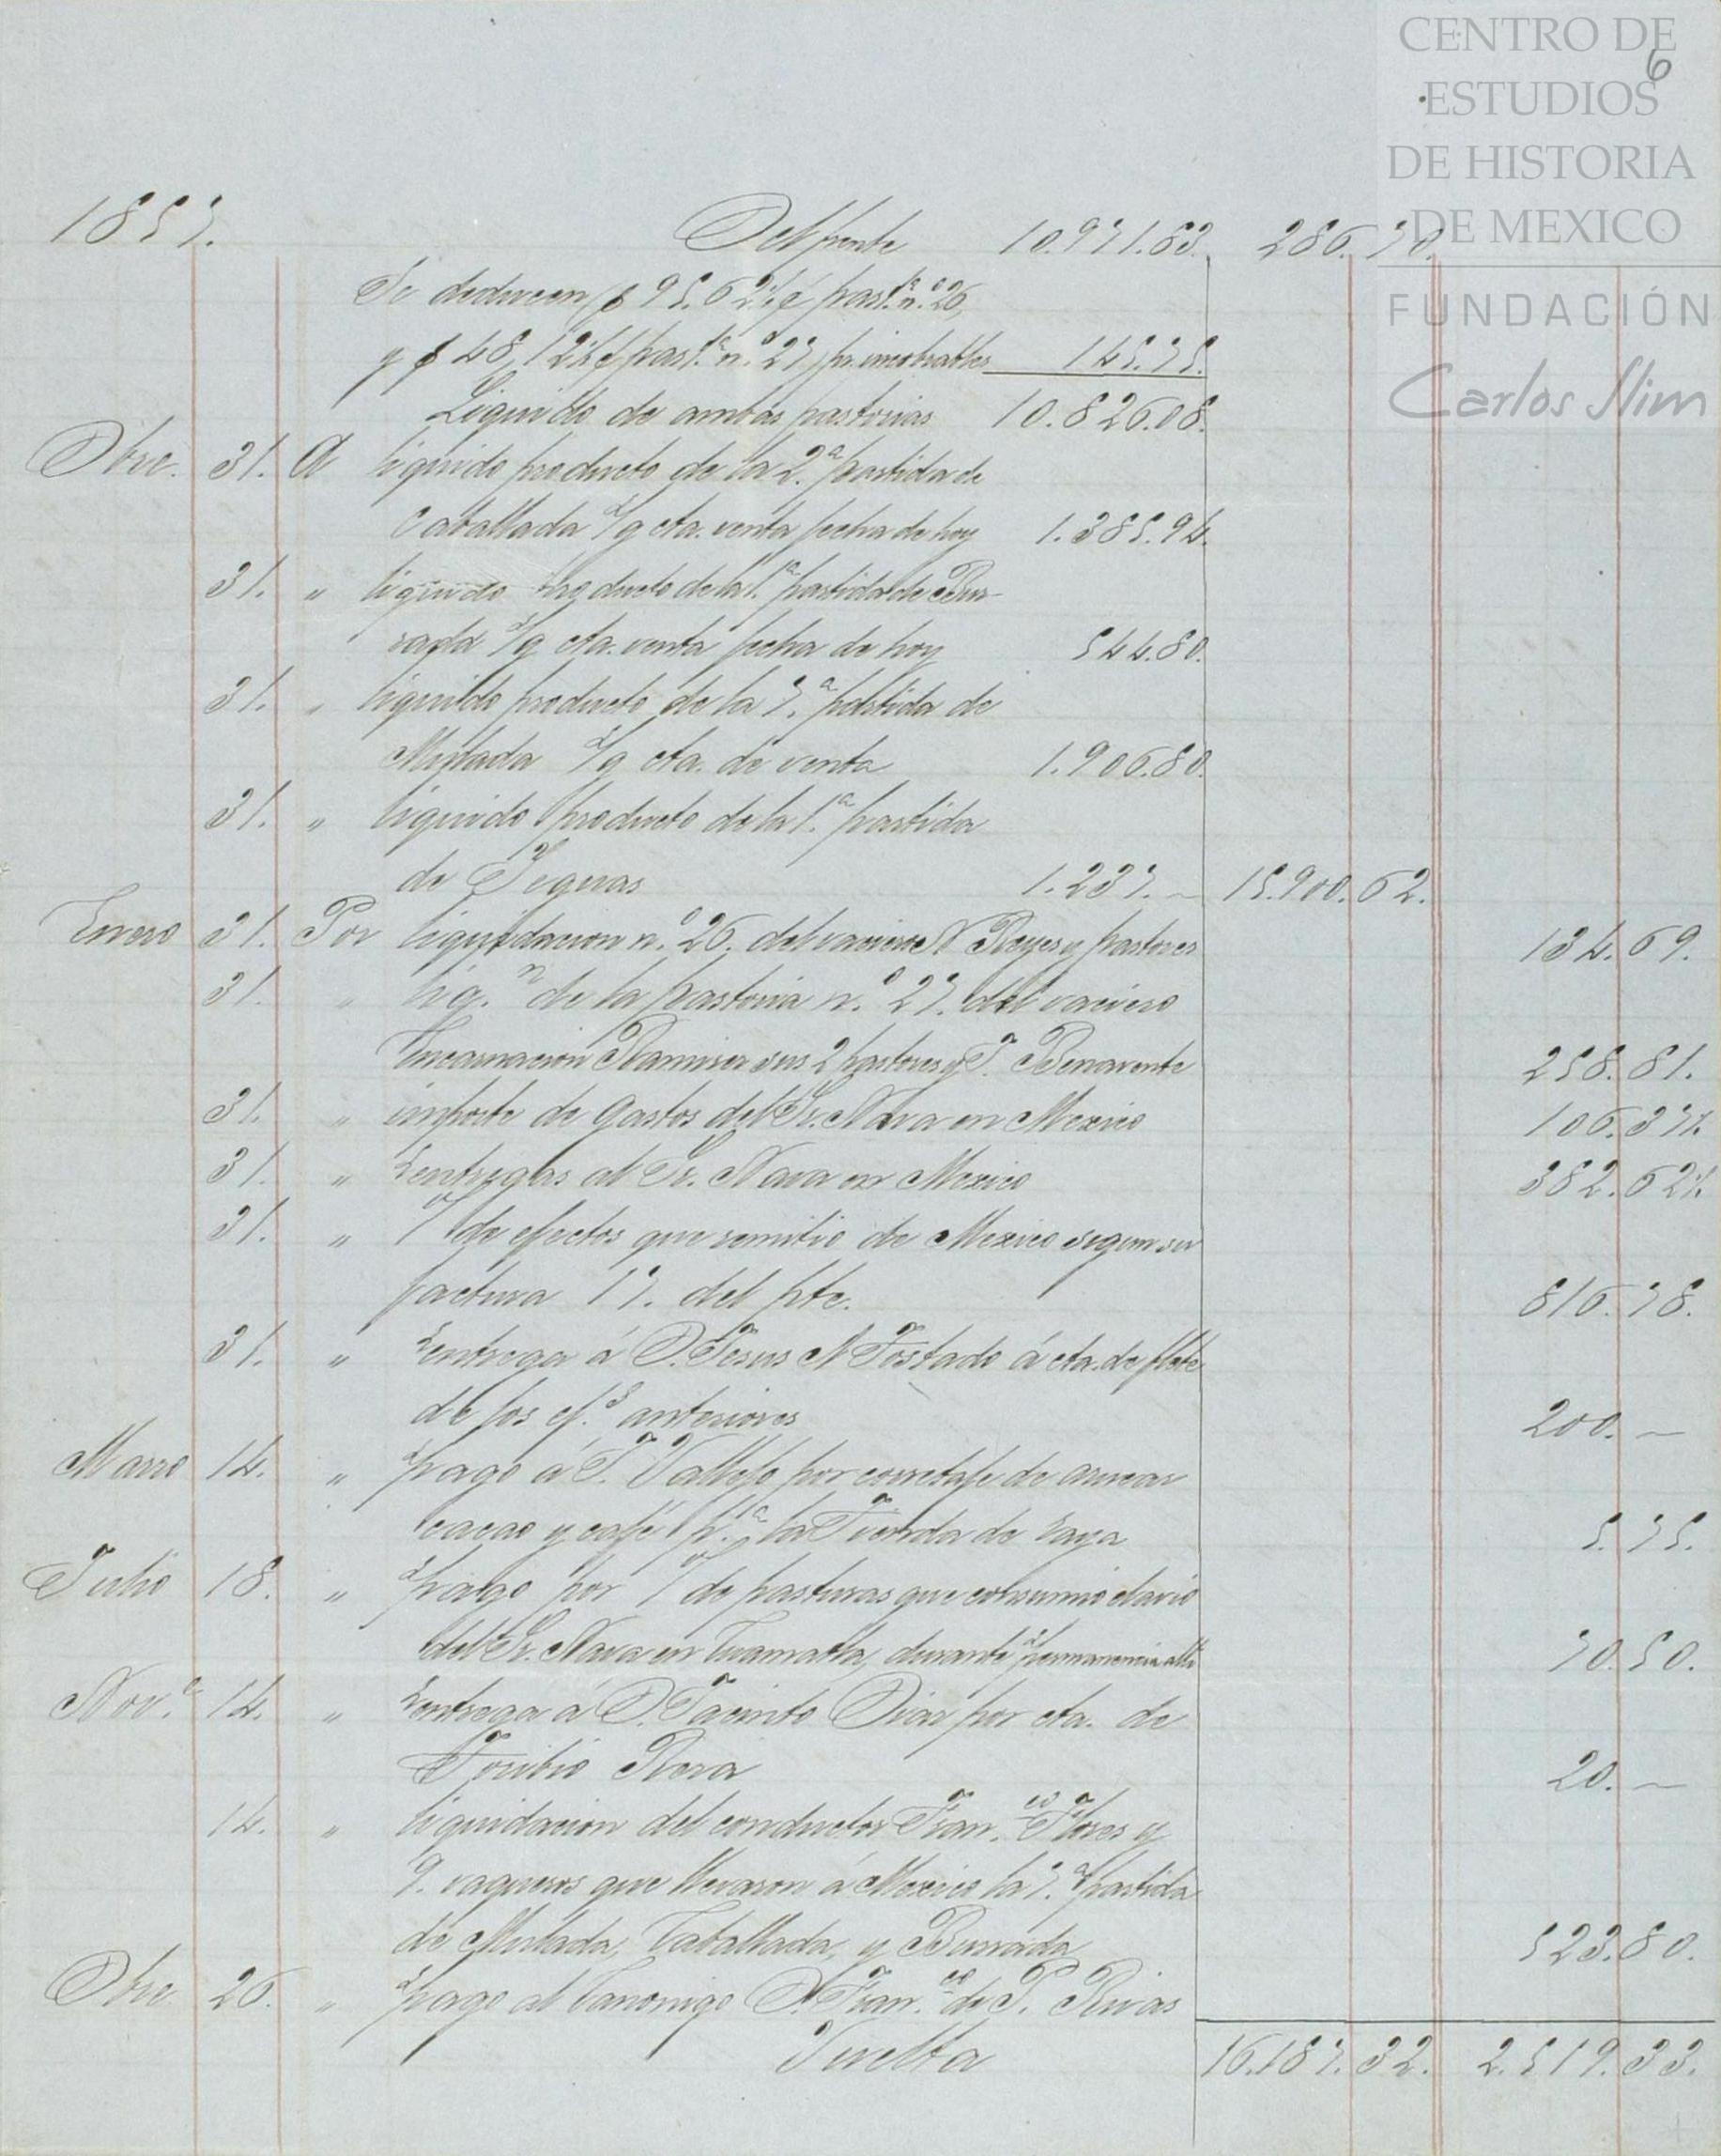 CENTRO DE
ESTUDIOS
DE HISTORIA
DE MEXICO
FUNDACIÓN
Carlos Slim
6
1857. Del frente 10.971.83. 286.70.
Se deducen $ 95.62½ past.ª n.º 26,
y $ 48,12½ past.ª n.º 27, pr. incobrables 145.75.
Liquido de ambas pastorias 10.826.08.
Dbre. 31. A liquido producto de la 2.ª partida de
Caballada s/g cta. venta fecha de hoy 1.385.94.
31. " liquido producto de la 1.ª partida de Bur-
rada s/g cta. venta fecha de hoy 544.80.
31. " liquido producto de la 7.ª partida de
Mulada s/g cta. de venta 1.906.80.
31. " liquido producto de la 1.ª partida
de Yeguas 1.237. – 15.900.62.
Enero 31. Por liquidacion n.º 26. del vaciero N Reyes y pastores 134.69.
31. " liq.n de la pastoria n.º 27. del vaciero
Encarnacion Ramirez sus 2 pastores y J. Benavente 258.81.
31. " importe de gastos del Sr. Nava en Mexico 106.37½
31. " s entregas al Sr. Nava en Mexico 382.62½
31. " de efectos que remitio de Mexico segun su
factura 17. del pte. 816.78.
31. " s entrega á D. Jesus N Tostado á cta. de flete
de los ef.s anteriores 200. –
Marzo 14. " s pago á J. Vallejo por corretaje de azucar
cacao y café p.ª la Tienda de raya 5.75.
Julio 18. " s pago por de pasturas que consumió el avio
del Sr. Nava en durante s permanencia alli 70.50.
Nov.e 14. " s entrega á D. Jacinto Dias por cta. de
Toribio Rera 20. –
14. " liquidacion del conductor Fran.co Flores y
9. vaqueros que llevaron á Mexico la 7.ª partida
de Mulada, Caballada, y Burrada 523.80.
Dbre 26. " s pago al Canonigo D. Fran.co de P. Rivas
Vuelta 16.187.32. 2.519.33.